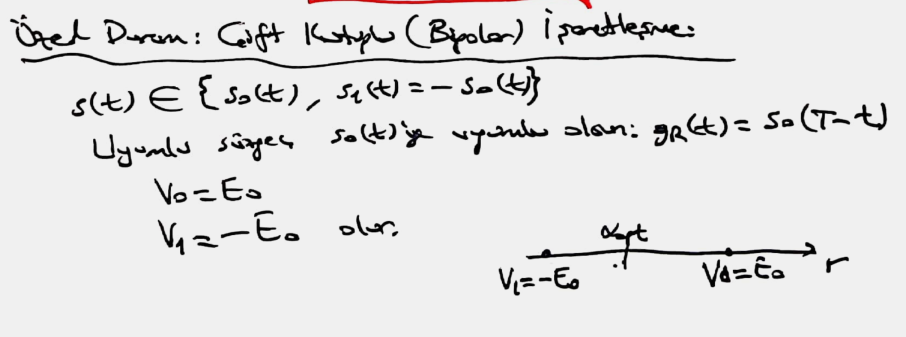 Özel Durum: Çift Kutuplu (Bipolar) İşaretleşme:
s(t) ∈ {s₀(t), s₁(t) = - s₀(t)}
Uyumlu süzgeç s₀(t)'ye uyumlu olsun: g_R(t) = s₀(T-t)
V₀ = E₀
V₁ = - E₀ olur.
α_opt
V₁=-E₀ V₀=E₀ r